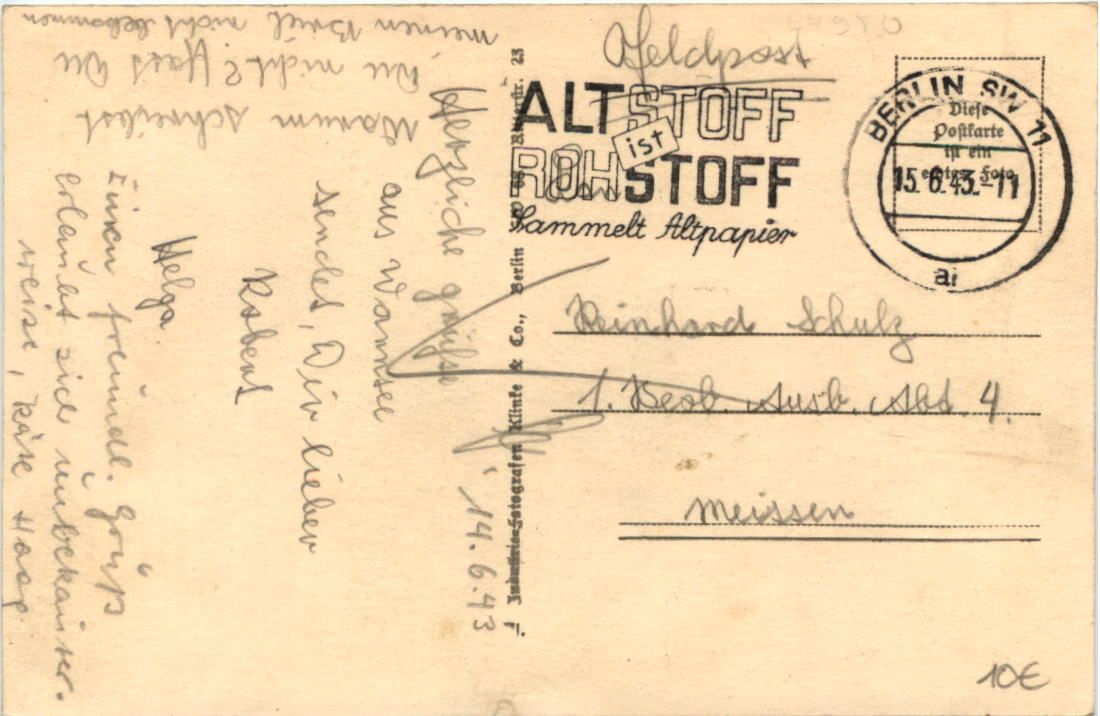 Feldpost
ALTSTOFF
ist
ROHSTOFF
Sammelt Altpapier
BERLIN SW 11
15.6.43.-11
Diese
Postkarte
ist ein
echtes Foto
Reinhard Schulz
1. Beob. Ausb. Abt. 4.
Meissen
Industrie-Fotografen Klinke & Co., Berlin
23
14.6.43
Herzliche Grüsse
aus Wannsee
sendet, Dir lieber
Robert
Helga
Einen freundl. Gruß
erlaubt sich unbekannter.
weise, Käse
Warum schreibst
Du nicht? Hast Du
meinen Brief nicht bekommen
10€